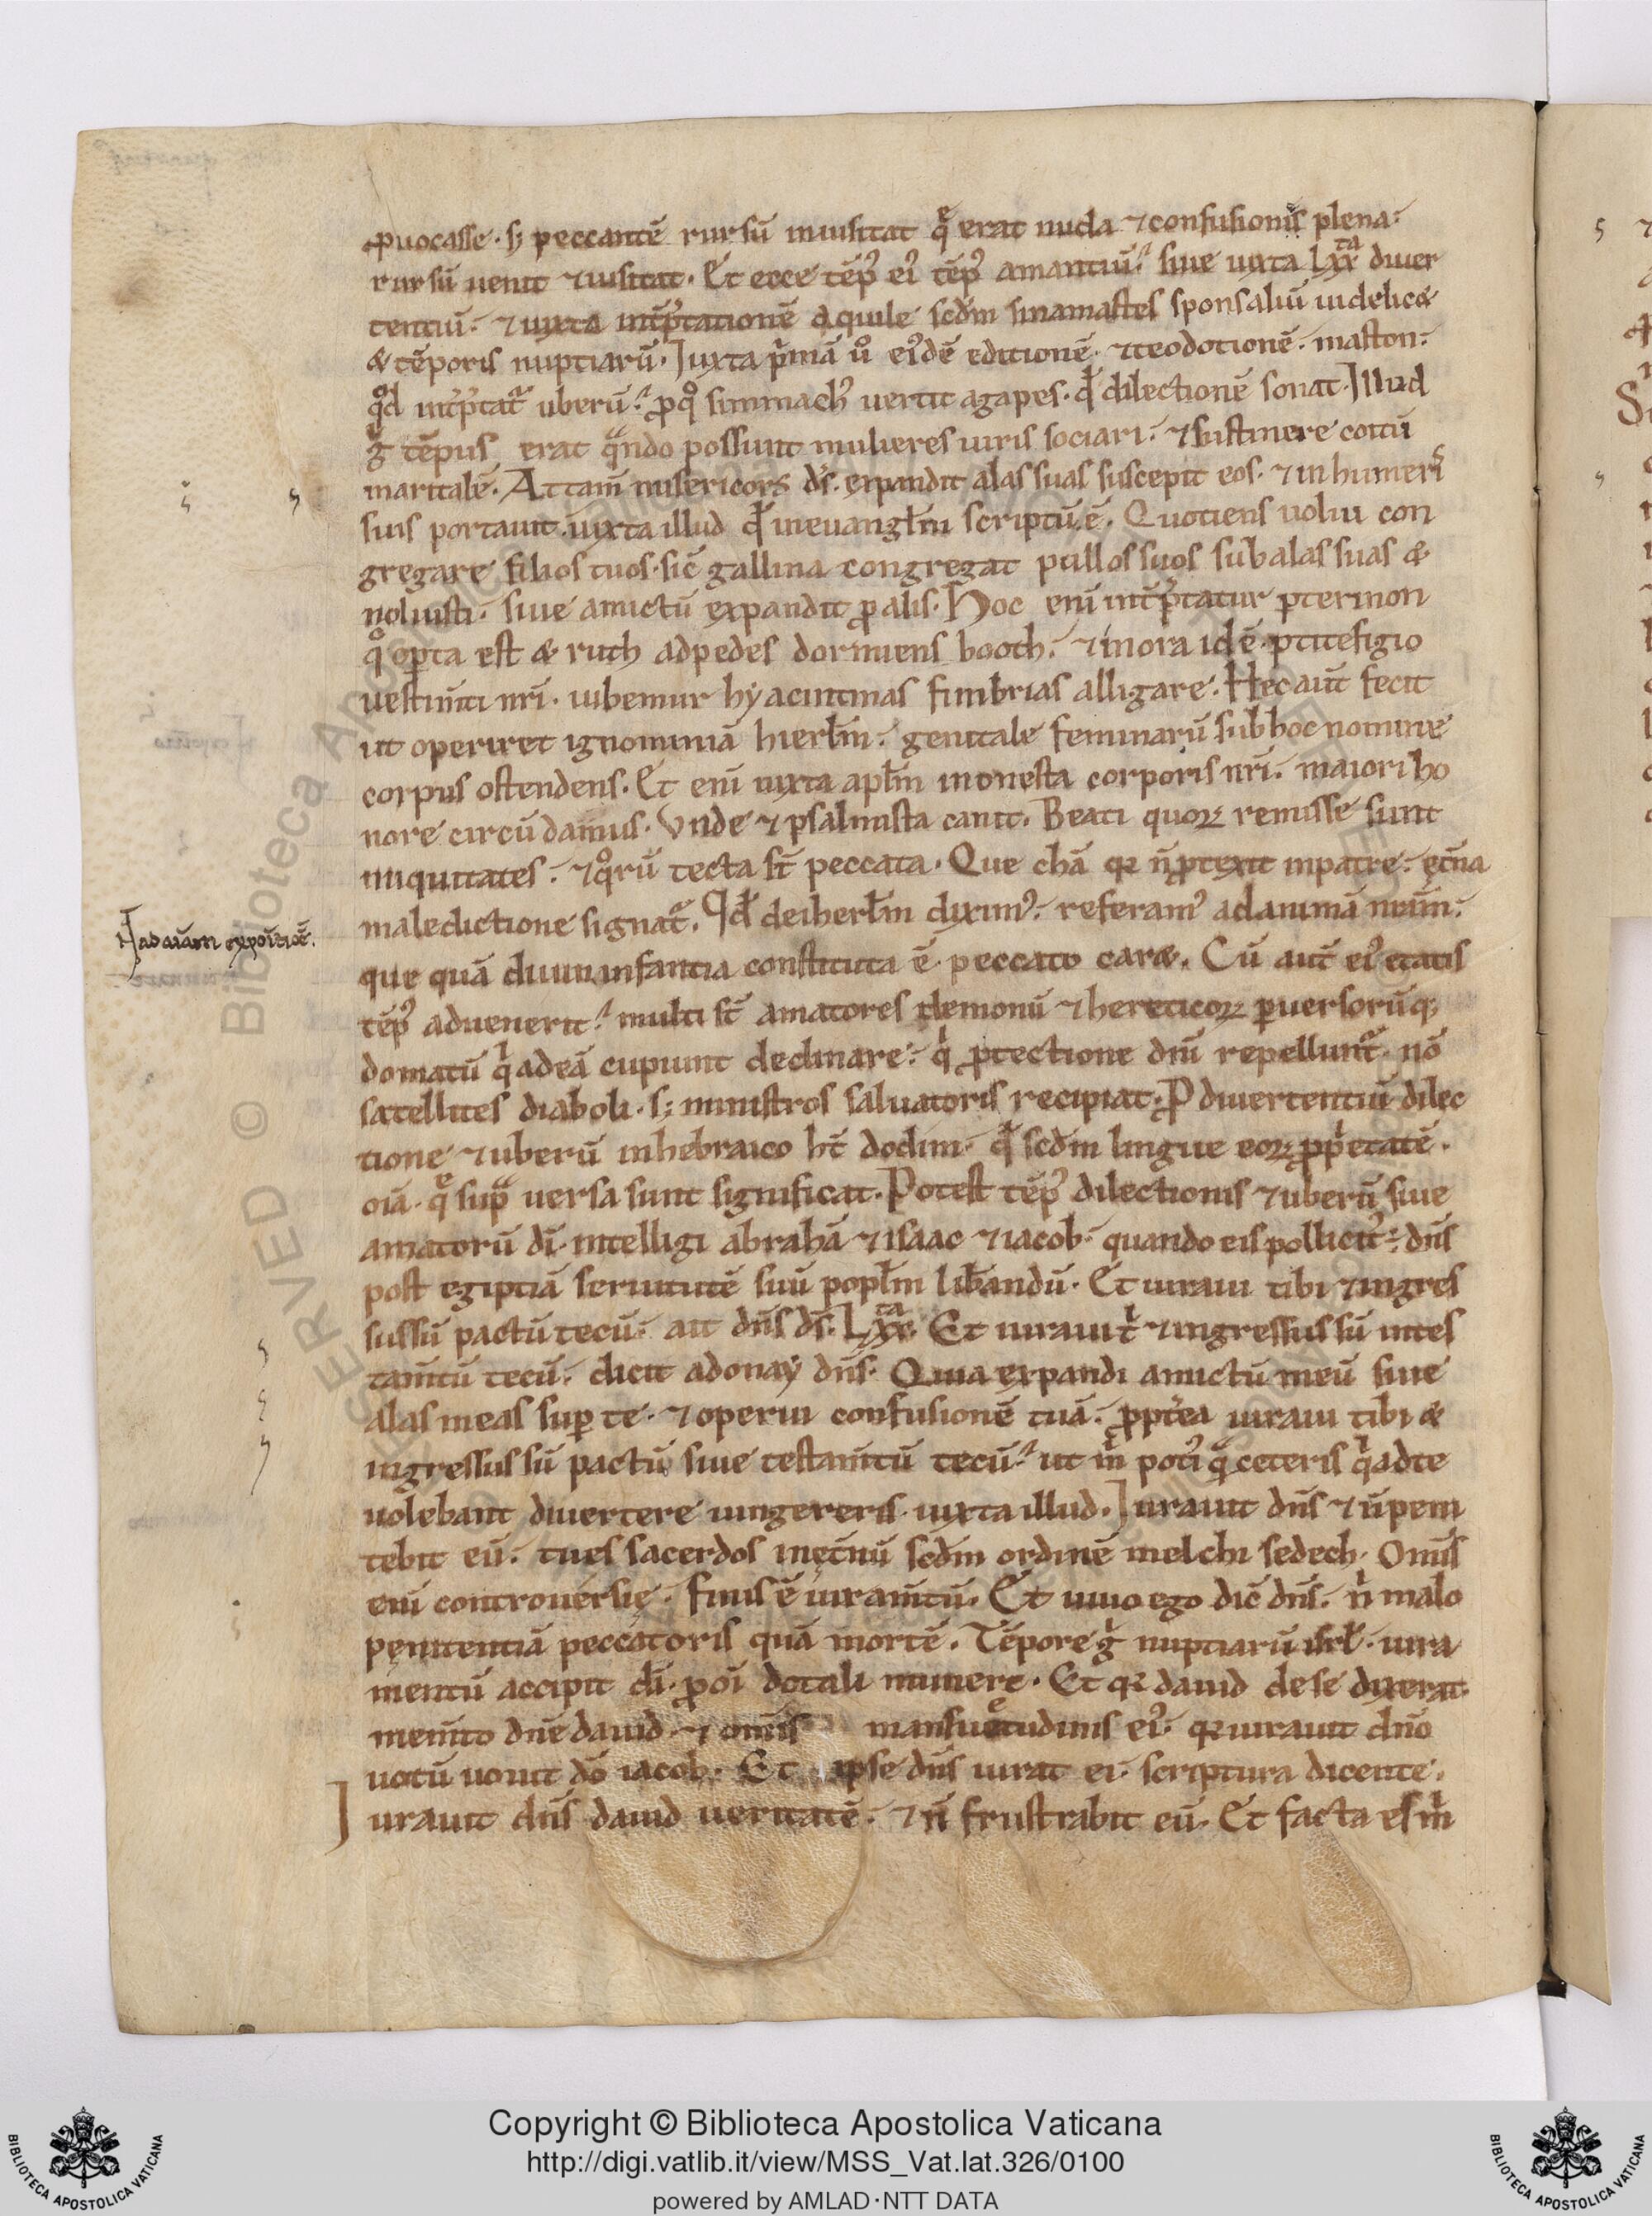 ꝓuocasse · sꝫ peccantē rursū inuisitat qͤ erat nuda ⁊ confusionis plena:
rursū uenit ⁊ uisitat. Et ecce tēpꝰ eiꝰ tēpꝰ amantiū: siue iuxta lxxᵗᵃ diuer
tentiū: ⁊ iuxta int̄p̄tationē aquile scđm sinamastes sponsaliū uidelicet
& tēporis nuptiarū. Iuxta p̄mā uͦ eiꝰdē editionē · ⁊ teodotionē · maston:
qͦd int̄p̄tat᷑ uberū: ꝓ qͦ simmachꝰ uertit agapes · qđ dilectionē sonat. Illud
g̊ tēpus erat qᵃndo possunt mulieres uiris sociari: ⁊ sustinere coitū
maritalē. Attam̄ misericors ds̄ · expandit alas suas suscepit eos · ⁊ in humeris
suis portauit · iuxta illud qđ in euangłm scriptū ē. Quotiens uolui con
gregare filios tuos · sic̄ gallina congregat pullos suos sub alas suas &
noluisti · siue amictū expandit ꝓ alis. Hoc eni̅ int̄p̄tatur pterinon
qͦ oꝑta est & ruth ad pedes dormiens booth: ⁊ in ora id ē ptitefigio
uestim̄ti nr̄i · iubemur hyacintinas fimbrias alligare. Hec aut̄ fecit
ut operiret ignominiā hierłm: genitale feminarū sub hoc nomine
corpus ostendens. Et eni̅ iuxta apłm inonesta corporis nr̄i: maiori ho
nore circūdamus. Vnde ⁊ psalmista canit. Beati quoꝝ remisse sunt
iniquitates: ⁊ qͦrū tecta st̄ peccata. Que chā qꝛ n̄ ꝓtexit in patre: ęt̄na
maledictione signat᷑. Qđ de iherłm diximꝰ: referamꝰ ad animā nr̄am:
Ad aīam expoītiōē.
que quā diu in infantia constituta ē · peccato caret. Cū aut̄ eiꝰ etatis
tēpꝰ aduenerit: multi st̄ amatores demonū ⁊ hereticoꝝ ꝑuersorūqꝫ
domatū qⁱ ad eā cupiunt declinare: qⁱ ꝓtectione dn̄i repellunt᷑ · nō
satellites diaboli · sꝫ ministros saluatoris recipiat. P diuertentiū dilec
tione ⁊ uberū in hebraico ht̄ dodim · qđ scđm lingue eoꝝ ꝓpⁱetatē ·
oīa · qͤ supᵃ uersa sunt significat. Potest tēpꝰ dilectionis ⁊ uberū siue
amatorū dī · intelligi abrahā ⁊ isaac ⁊ iacob · quando eis pollicit᷑: dn̄s
post egiptiā seruitutē suū popłm lib̄andū. Et iuraui tibi ⁊ ingres
sus sū pactū tecū: ait dn̄s ds̄. Lxxᵗᵃ. Et iuraui tⁱ ⁊ ingressus sū in tes
tam̄tū tecū: dicit adonay dn̄s. Quia expandi amictū meū siue
alas meas suꝑ te · ⁊ operui confusionē tuā: ꝓpt̄ea iuraui tibi &
ingressus sū pactū siue testam̄tū tecū: ut mⁱ potiꝰ qᵃ ceteris qⁱ ad te
uolebant diuertere iungereris · iuxta illud. Iurauit dn̄s ⁊ n̄ peni
tebit eū: tu es sacerdos in ęt̄nū scđm ordinē melchisedech. Omīs
eni̅ controuersię · finis ē iuram̄tū. Et uiuo ego dic̄ dn̄s: n̄ malo
penitentiā peccatoris quā mortē. Tēpore g̊ nuptiarū isrł · iura
mentū accipit dī · ꝓ oī dotali munere. Et qꝛ dauid de se dixerat
mem̄to dn̄e dauid · ⁊ omīs mansuetudinis eiꝰ · qꝛ iurauit dn̄o
uotū uouit dō iacob. Et ipse dn̄s iurat ei · scriptura dicente ·
Iurauit dn̄s dauid ueritatē: ⁊ n̄ frustrabit eū. Et facta es mⁱ
Copyright © Biblioteca Apostolica Vaticana
http://digi.vatlib.it/view/MSS_Vat.lat.326/0100
powered by AMLAD·NTT DATA
BIBLIOTECA APOSTOLICA VATICANA
BIBLIOTECA APOSTOLICA VATICANA